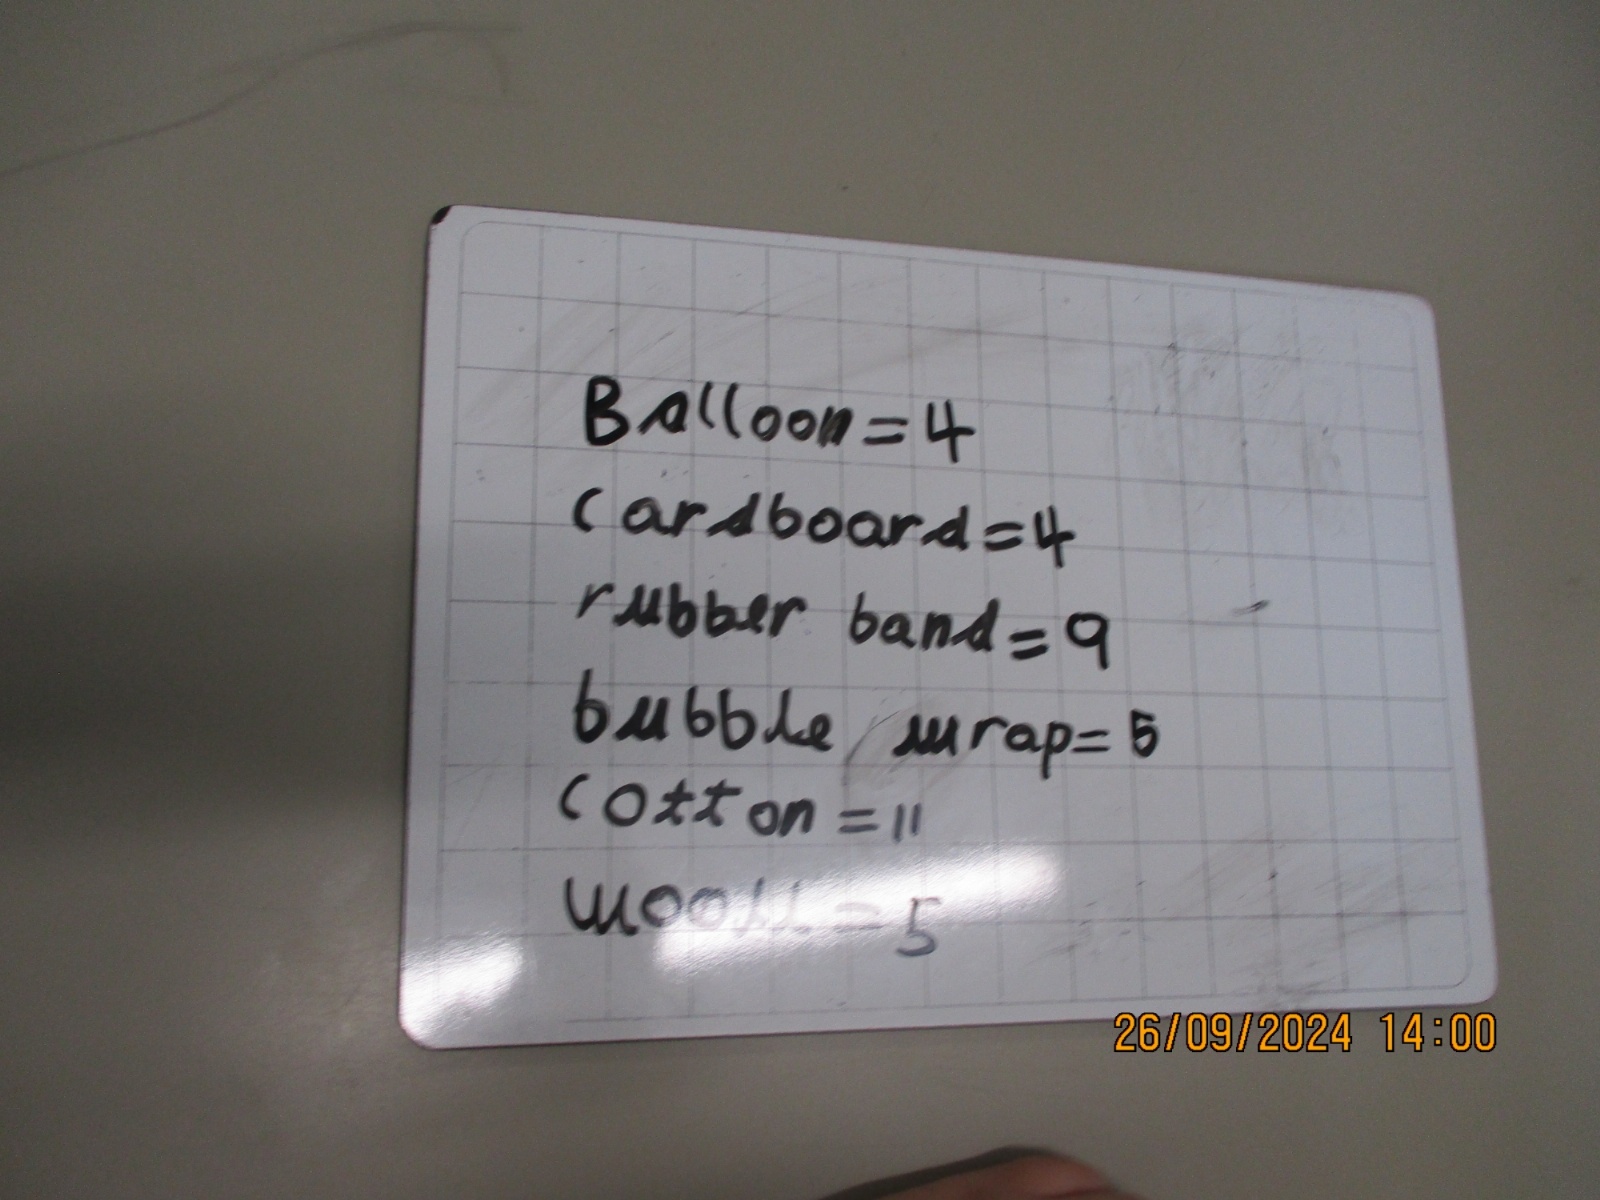 Balloon = 4
cardboard = 4
rubber band = 9
bubble wrap = 5
cotton = 11
wooll = 5
26/09/2024 14:00